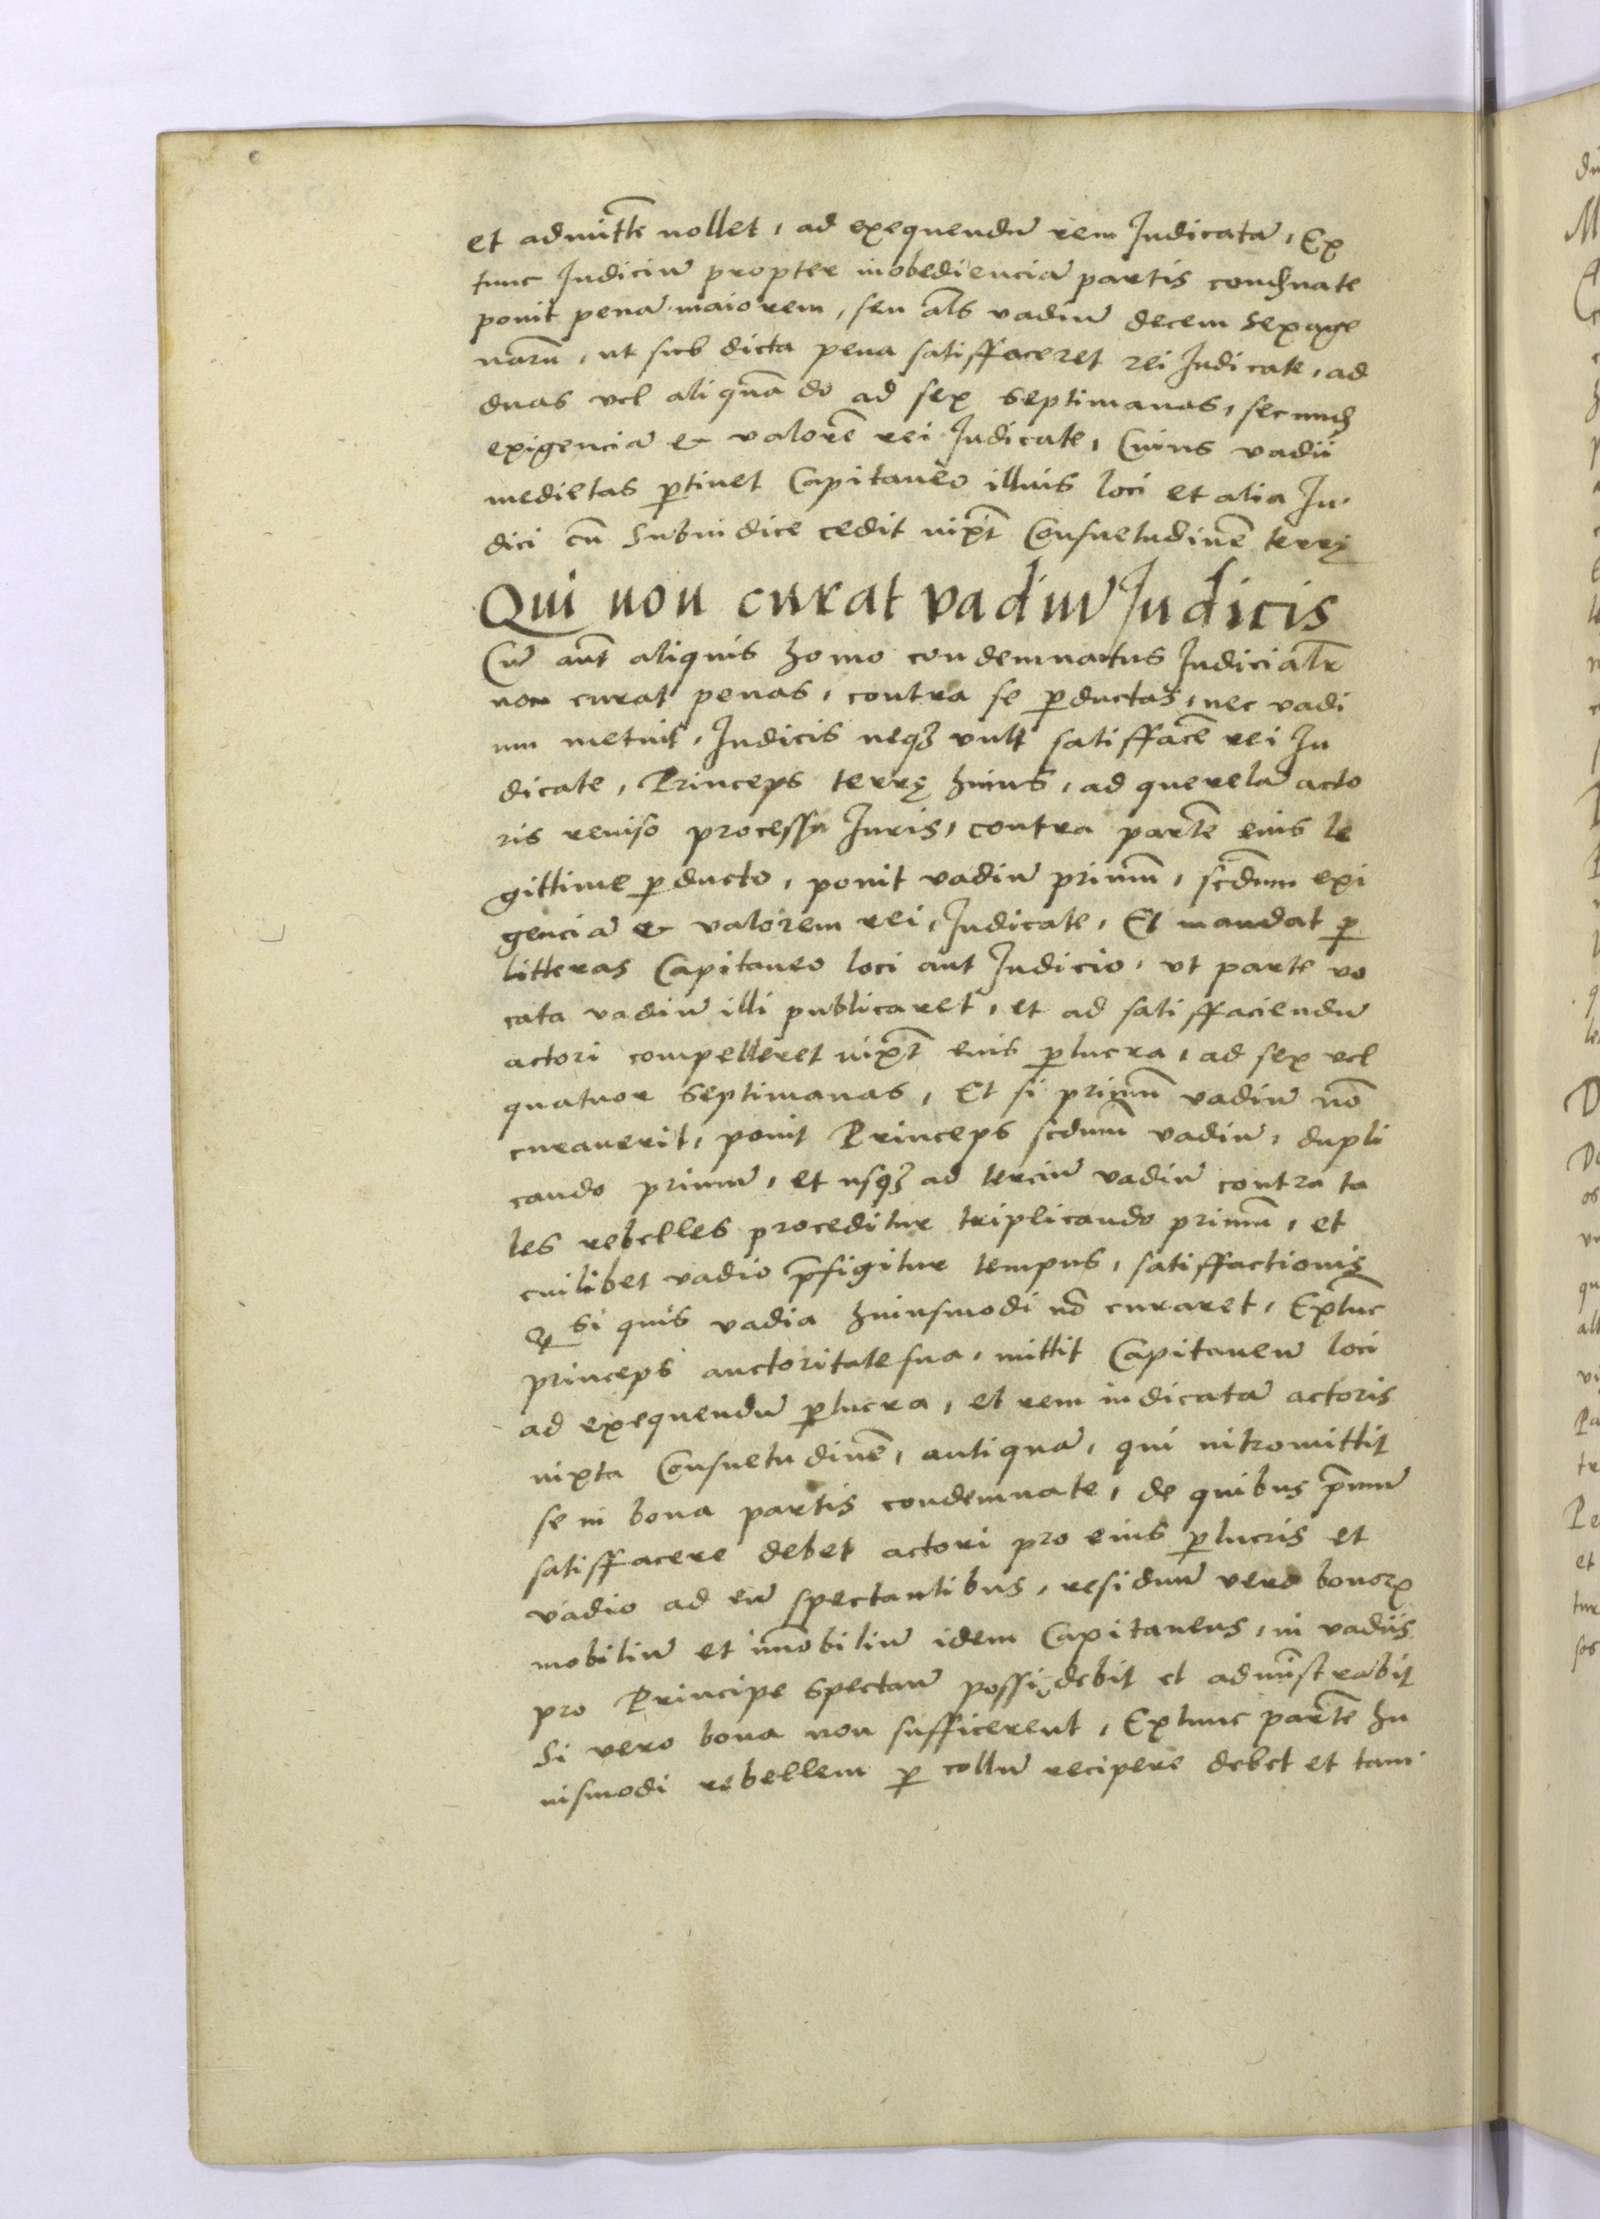 et admittē nollet, ad exequendū rem Judicatā, Ex
tunc Judiciū propter inobedienciā partis condꝫnate
ponit penā maiorem, seu als̄ vadiū decem sexage
narū, ut sub dicta pena satisfaceret rei Judicate, ad
duas vel aliquādo ad sex septimanas, secundꝫ
exigenciā et valorē rei Judicate, Cuius vadii
medietas ꝑtinet Capitaneo illius loci et alia Ju
dici cū Subiudice cedit iuxt̄ Consuetudinē terrę
Qui non curat vadiū Judicis
Cū aut̄ aliquis homo condemnatus Judicialr̄
non curat penas, contra se ꝑductas, nec vadi
um metuit, Judicis neqꝫ vult satisfacē rei Ju
dicate, Princeps terrę huius, ad querelā acto
ris reuiso processu Juris, contra partē eius le
gittime ꝑducto, ponit vadiū primū, scd̄um exi
genciā et valorem rei Judicate, Et mandat ꝑ
litteras Capitaneo loci aut Judicio, ut parte vo
cata vadiū illi publicaret, et ad satisfaciendū
actori compelleret iuxt̄ eius ꝑlucra, ad sex vel
quatuor septimanas, Et si primū vadiū nō
curauerit, ponit Princeps scd̄um vadiū, dupli
cando primū, et usqꝫ ad terciū vadiū contra ta
les rebelles proceditur triplicando primū, et
cuilibet vadio p̄figitur tempus, satisfactionis
Si quis vadia huiusmodi nō curaret, Extunc
princeps auctoritate sua, mittit Capitaneū loci
ad exequendū ꝑlucra, et rem iudicatā actoris
iuxta Consuetudinē, antiquā, qui intromittit
se in bona partis condemnate, de quibus p̄mū
satisfacere debet actori pro eius ꝑlucris et
vadio ad eū spectantibus, residuū vero bonoꝝ
mobiliū et im̄obiliū idem Capitaneus, in vadiis
pro Principe spectan̄ possidebit et admīstrabit
Si vero bona non sufficerent, Extunc partē hu
iusmodi rebellem ꝑ collū recipere debet et tam